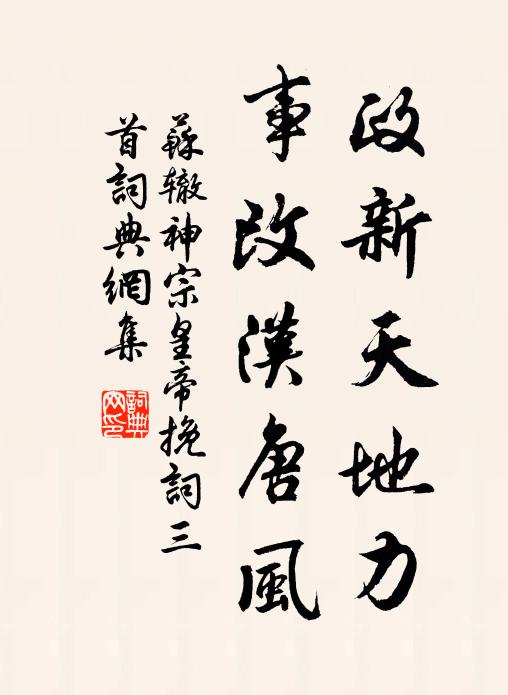 政新天地力
事改漢唐風
蘇辙神宗皇帝挽詞三
首詞典網集
詞典
网印